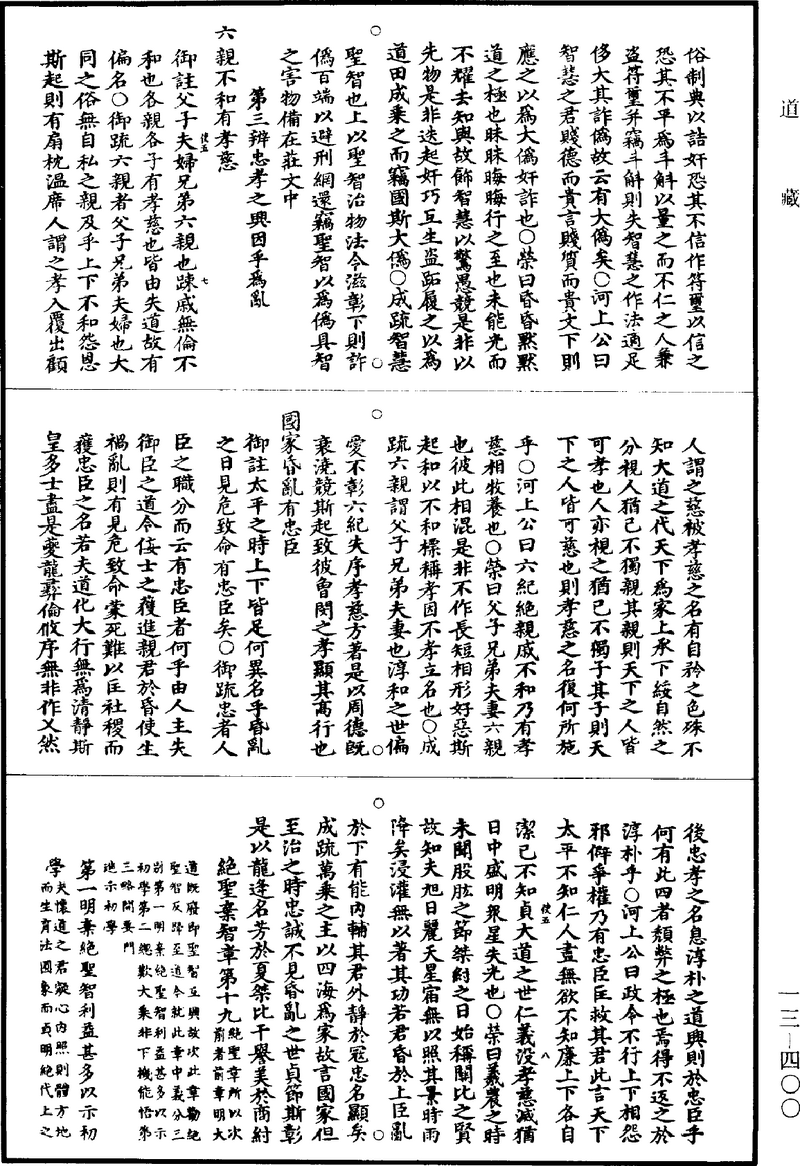 道藏
一三—四〇〇
俗制典以詰奸恐其不信作符璽以信之
恐其不平爲斗斛以量之而不仁之人兼
盜符璽并竊斗斛則失智慧之作法適足
侈大其詐僞故云有大僞矣〇河上公曰
智慧之君賤德而貴言賤質而貴文下則
應之以爲大僞奸詐也〇榮曰昏昏默默
道之極也昧昧晦晦行之至也未能光而
不耀去知與故飾智慧以驚愚競是非以
先物是非迭起奸巧互生盜跖履之以爲
道田成乘之而竊國斯大僞〇成疏智慧
聖智也上以聖智治物法令滋彰下則詐
僞百端以避刑網還竊聖智以爲僞具智
之害物備在莊文中
第三辨忠孝之興因乎爲亂
六親不和有孝慈
御註父子夫婦兄弟六親也疎戚無倫不
和也各親各子有孝慈也皆由失道故有
偏名〇御疏六親者父子兄弟夫婦也大
同之俗無自私之親及乎上下不和怨恩
斯起則有扇枕溫席人謂之孝入覆出顧
使五
七
人謂之慈被孝慈之名有自矜之色殊不
知大道之代天下爲家上承下綏自然之
分視人猶己不獨親其親則天下之人皆
可孝也人亦視之猶己不獨子其子則天
下之人皆可慈也則孝慈之名復何所施
乎〇河上公曰六紀絕親戚不和乃有孝
慈相牧養也〇榮曰父子兄弟夫妻六親
也彼此相混是非不作長短相形好惡斯
起和以不和標稱孝因不孝立名也〇成
疏六親謂父子兄弟夫妻也淳和之世偏
愛不彰六紀失序孝慈方著是以周德既
衰澆競斯起致彼曾閔之孝顯其高行也
國家昏亂有忠臣
御註太平之時上下皆足何異名乎昏亂
之日見危致命有忠臣矣〇御疏忠者人
臣之職分而云有忠臣者何乎由人主失
御臣之道令佞士之獲進親君於昏使生
禍亂則有見危致命蒙死難以匡社稷而
獲忠臣之名若夫道化大行無爲清靜斯
皇多士盡是夔龍彝倫攸序無非作乂然
後忠孝之名息淳朴之道興則於忠臣乎
何有此四者頹弊之極也焉得不返之於
淳朴乎〇河上公曰政令不行上下相怨
邪僻爭權乃有忠臣匡救其君此言天下
太平不知仁人盡無欲不知廉上下各自
潔己不知貞大道之世仁義沒孝慈滅猶
日中盛明衆星失光也〇榮曰羲農之時
未聞股肱之節桀紂之日始稱關比之賢
故知夫旭日麗天星宿無以照其景時雨
降矣浸灌無以著其功若君昏於上臣亂
於下有能內輔其君外靜於冠忠名顯矣
成疏萬乘之主以四海爲家故言國家但
至治之時忠誠不見昏亂之世貞節斯彰
是以龍逢名芳於夏桀比干譽美於商紂
使五
八
絕聖棄智章第十九絕聖章所以次前者前章明大
道既廢即聖智互興故次此章勸絕
聖智反歸至道今就此章中義分三
別第一明棄絕聖智利益甚多以示
初學第二總歎大乘非下機能悟第
三略開要門
進示初學
第一明棄絕聖智利益甚多以示初
學夫懷道之君凝心內照則體方地
而生育法圓象而貞明絕代上之